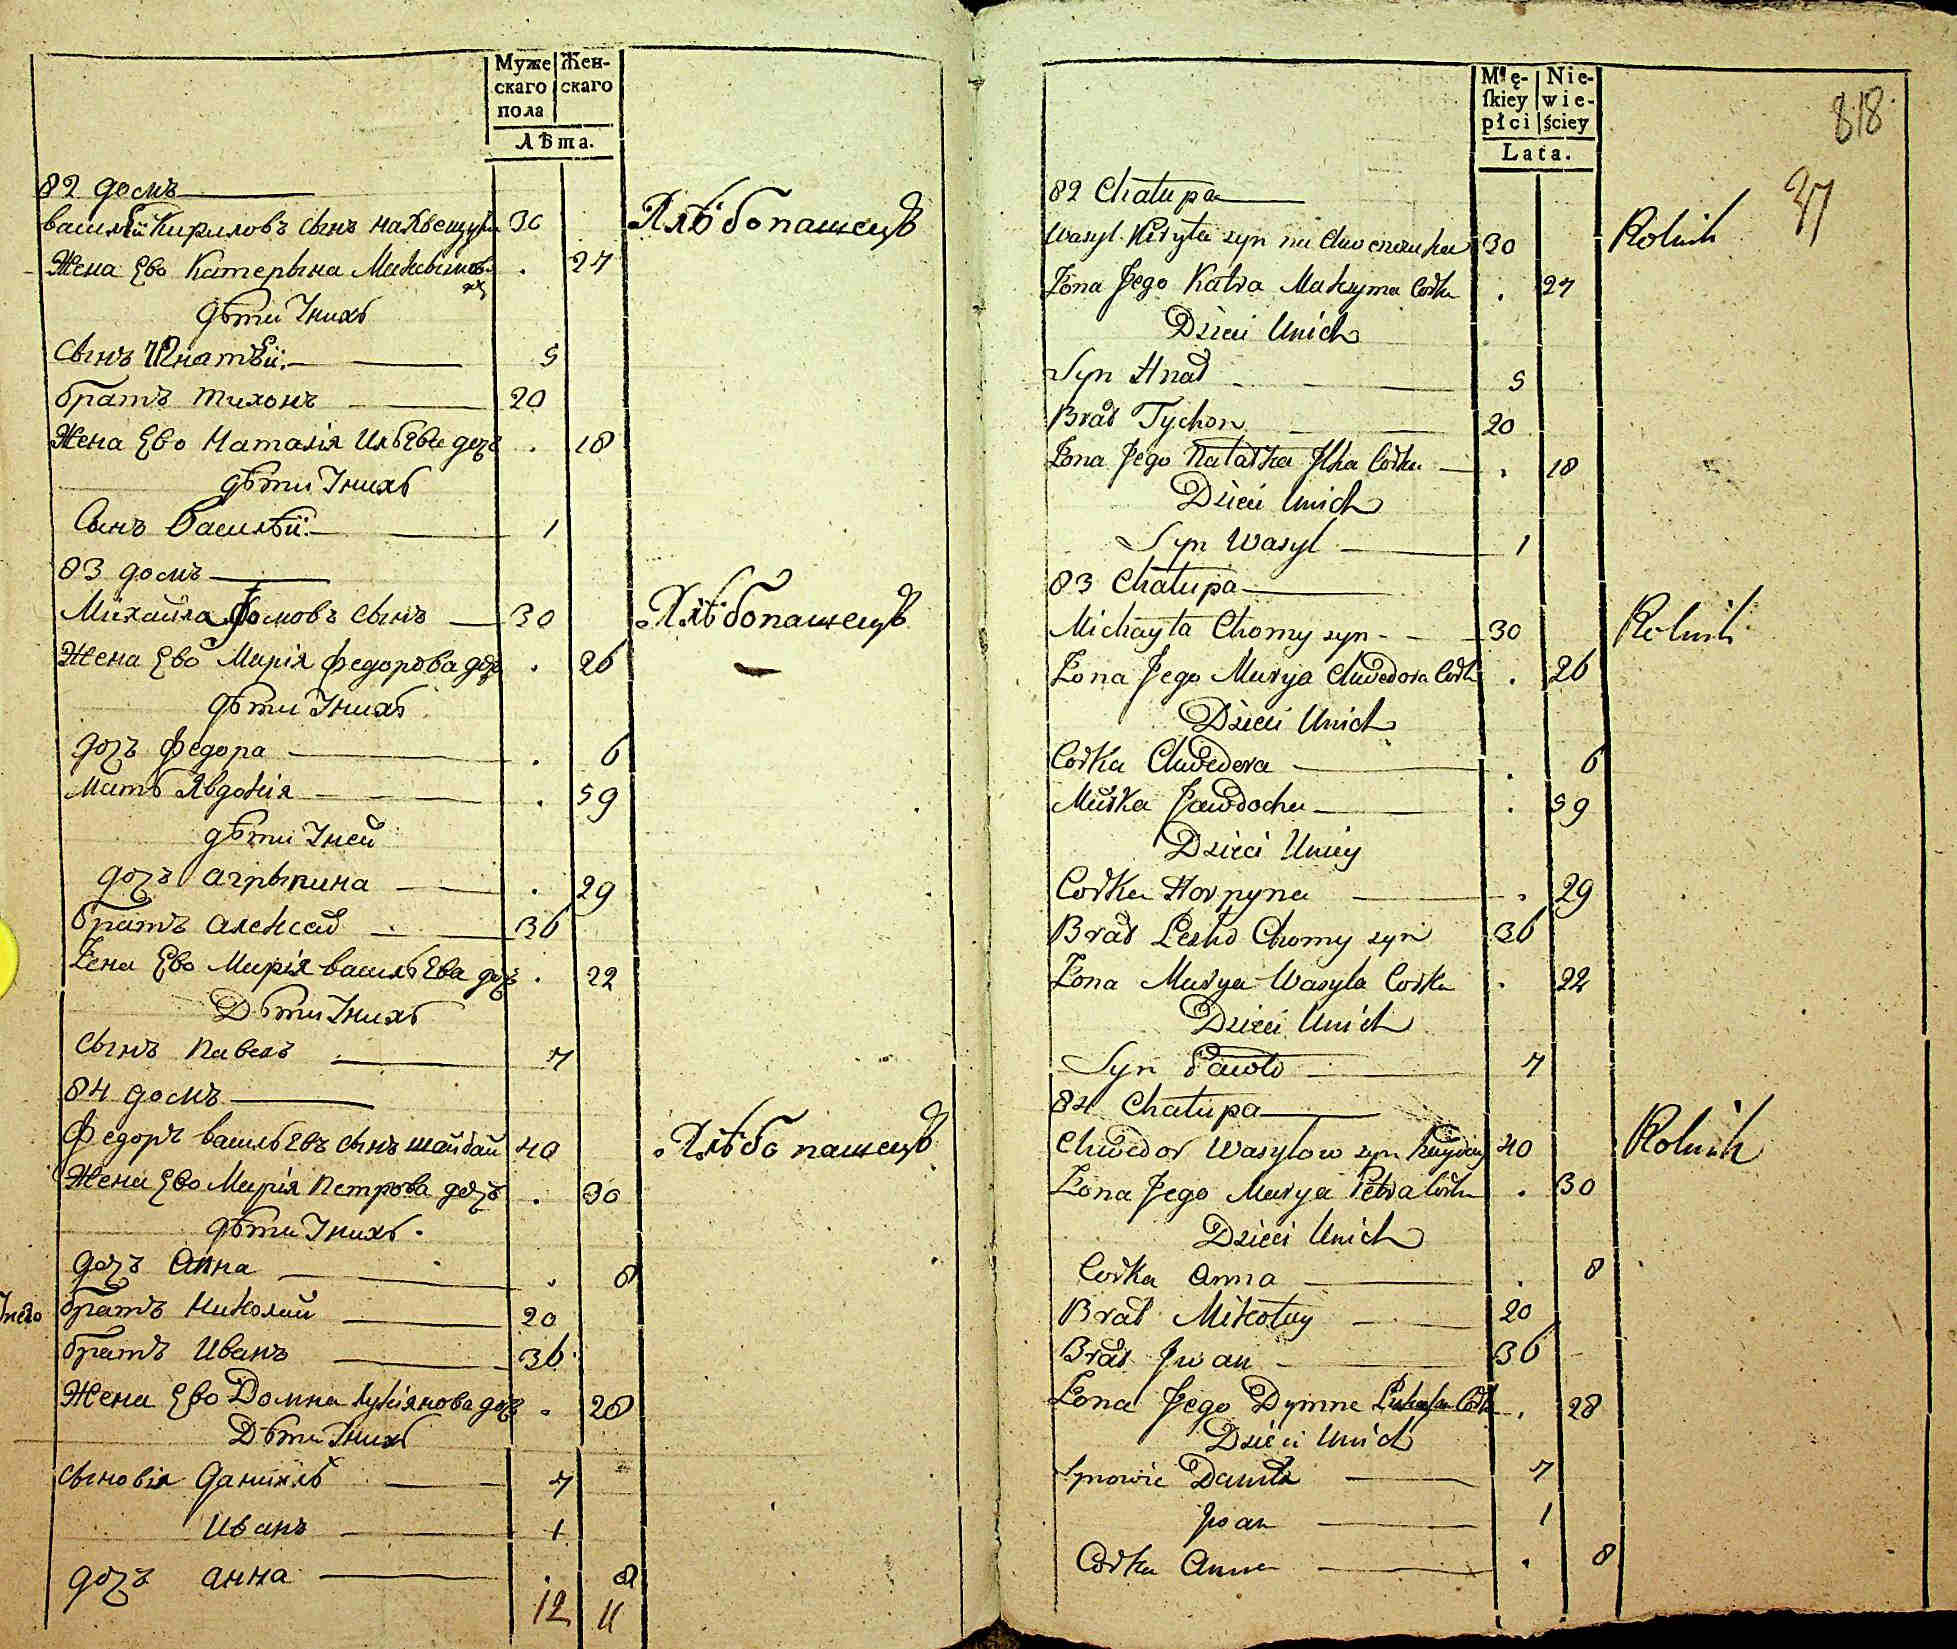 Муже
скаго
пола
Жен-
скаго
Лѣта.
82 домъ
василѣй Кириловъ сынъ 30 Хлѣбопашецъ
Жена Ево Катерына . 27
дѣти Ґнихъ
сынъ Игнатѣй 5
братъ тихонъ 20
Жена Ево Наталія Илѣева дочъ . 18
дѣти Ґнихъ
Сынъ Василѣй 1
83 домъ
Михайла Фомовъ сынъ 30 Хлѣбопашецъ
Жена Ево Марія федорова дочъ . 26
дѣти Ґнихъ
дочъ федора . 6
мать Явдокія . 59
дѣти Ґней
дочъ агрыпина . 29
братъ алексей 36
Жена Ево Марія василѣева дочъ . 22
Дѣти Ґнихъ
сынъ павелъ 7
84 домъ
федоръ василѣевъ сынъ 40 Хлѣбопашецъ
Жена Ево Марія петрова дочъ . 30
дѣти Ґнихъ
дочъ Анна . 8
братъ николай 20
братъ иванъ 36
Жена Ево Домна лукіянова дочъ . 28
Дѣти Ґнихъ
сыновія даніилъ 7
иванъ 1
дочъ анна . 8
12 11
Mę-
skiey
płci
Nie-
wie-
ściey
Lata.
818
37
82 Chałupa
Wasyl Kiryła syn 30 Rolnik
Żona Jego Katra Maksyma Corka . 27
Dzieci Unich
Syn Hnat 5
Brat Tychon 20
Żona Jego Natałka Jlka Corka . 18
Dzieci Unich
Syn Wasyl 1
83 Chałupa
Michayła Chomy syn 30 Rolnik
Żona Jego Marya Chwedora Corka . 26
Dzieci Unich
Corka Chwedora . 6
Matka Jawdocha . 59
Dzieci Uniey
Corka Horpyna . 29
Brat Lesko Chomy syn 36
Żona Marya Wasyla Corka . 22
Dzieci Unich
Syn Pawło 7
84 Chałupa
Chwedor Wasylow syn 40 Rolnik
Żona Jego Marya Petra Corka . 30
Dzieci Unich
Corka Anna . 8
Brat Mikołay 20
Brat Jwan 36
Żona Jego Dymna Corka . 28
Dzieci Unich
Synowie Danilo 7
Jwan 1
Corka Anna . 8